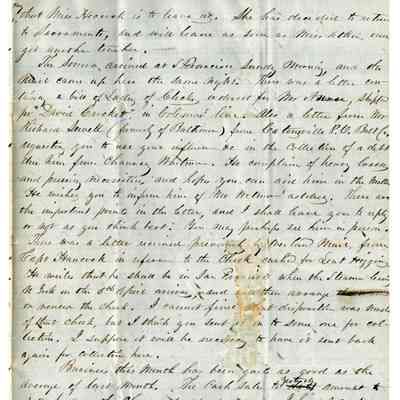 that Miss Hancock is to leave us. She has decided to return
to Sacramento, and will leave as soon as Miss can
get another teacher.
The Sonora arrived at S Francisco Sunday Morning and the
Mail came up here the same night. There was a letter con-
taining a bill of Lading of Clocks, ordered for Mr shipped
pr "David Crockett" in Coleman's line. Also a letter from Mr
Richard Sewell (formerly of Baltimore) from
requesting you to use your influence in the Collection of a debt
due him from Chauncey Wetmore. He complains of heavy losses
and pressing necessities, and hopes you can aid him in the matter
He wishes you to inform him of Mr Wetmore's address. These are
the important points in the letter, and I shall leave you to reply
or not as you think best. You may perhaps see him in person.
There was a letter received from
Capt Hancock in reference to the Check cashed for Lieut Higgins
He writes that he shall be in San Francisco when the Steamer leaving
N York on the 5th April arrives, and will then arrange
or renew the check. I cannot find what disposition was made
of that check, but I think you sent it on to some one for col-
lection. I suppose it will be necessary to have it sent back
again for collection here.
Business this Month has been quite as good as the
average of last Month. The Cash Sales amount to